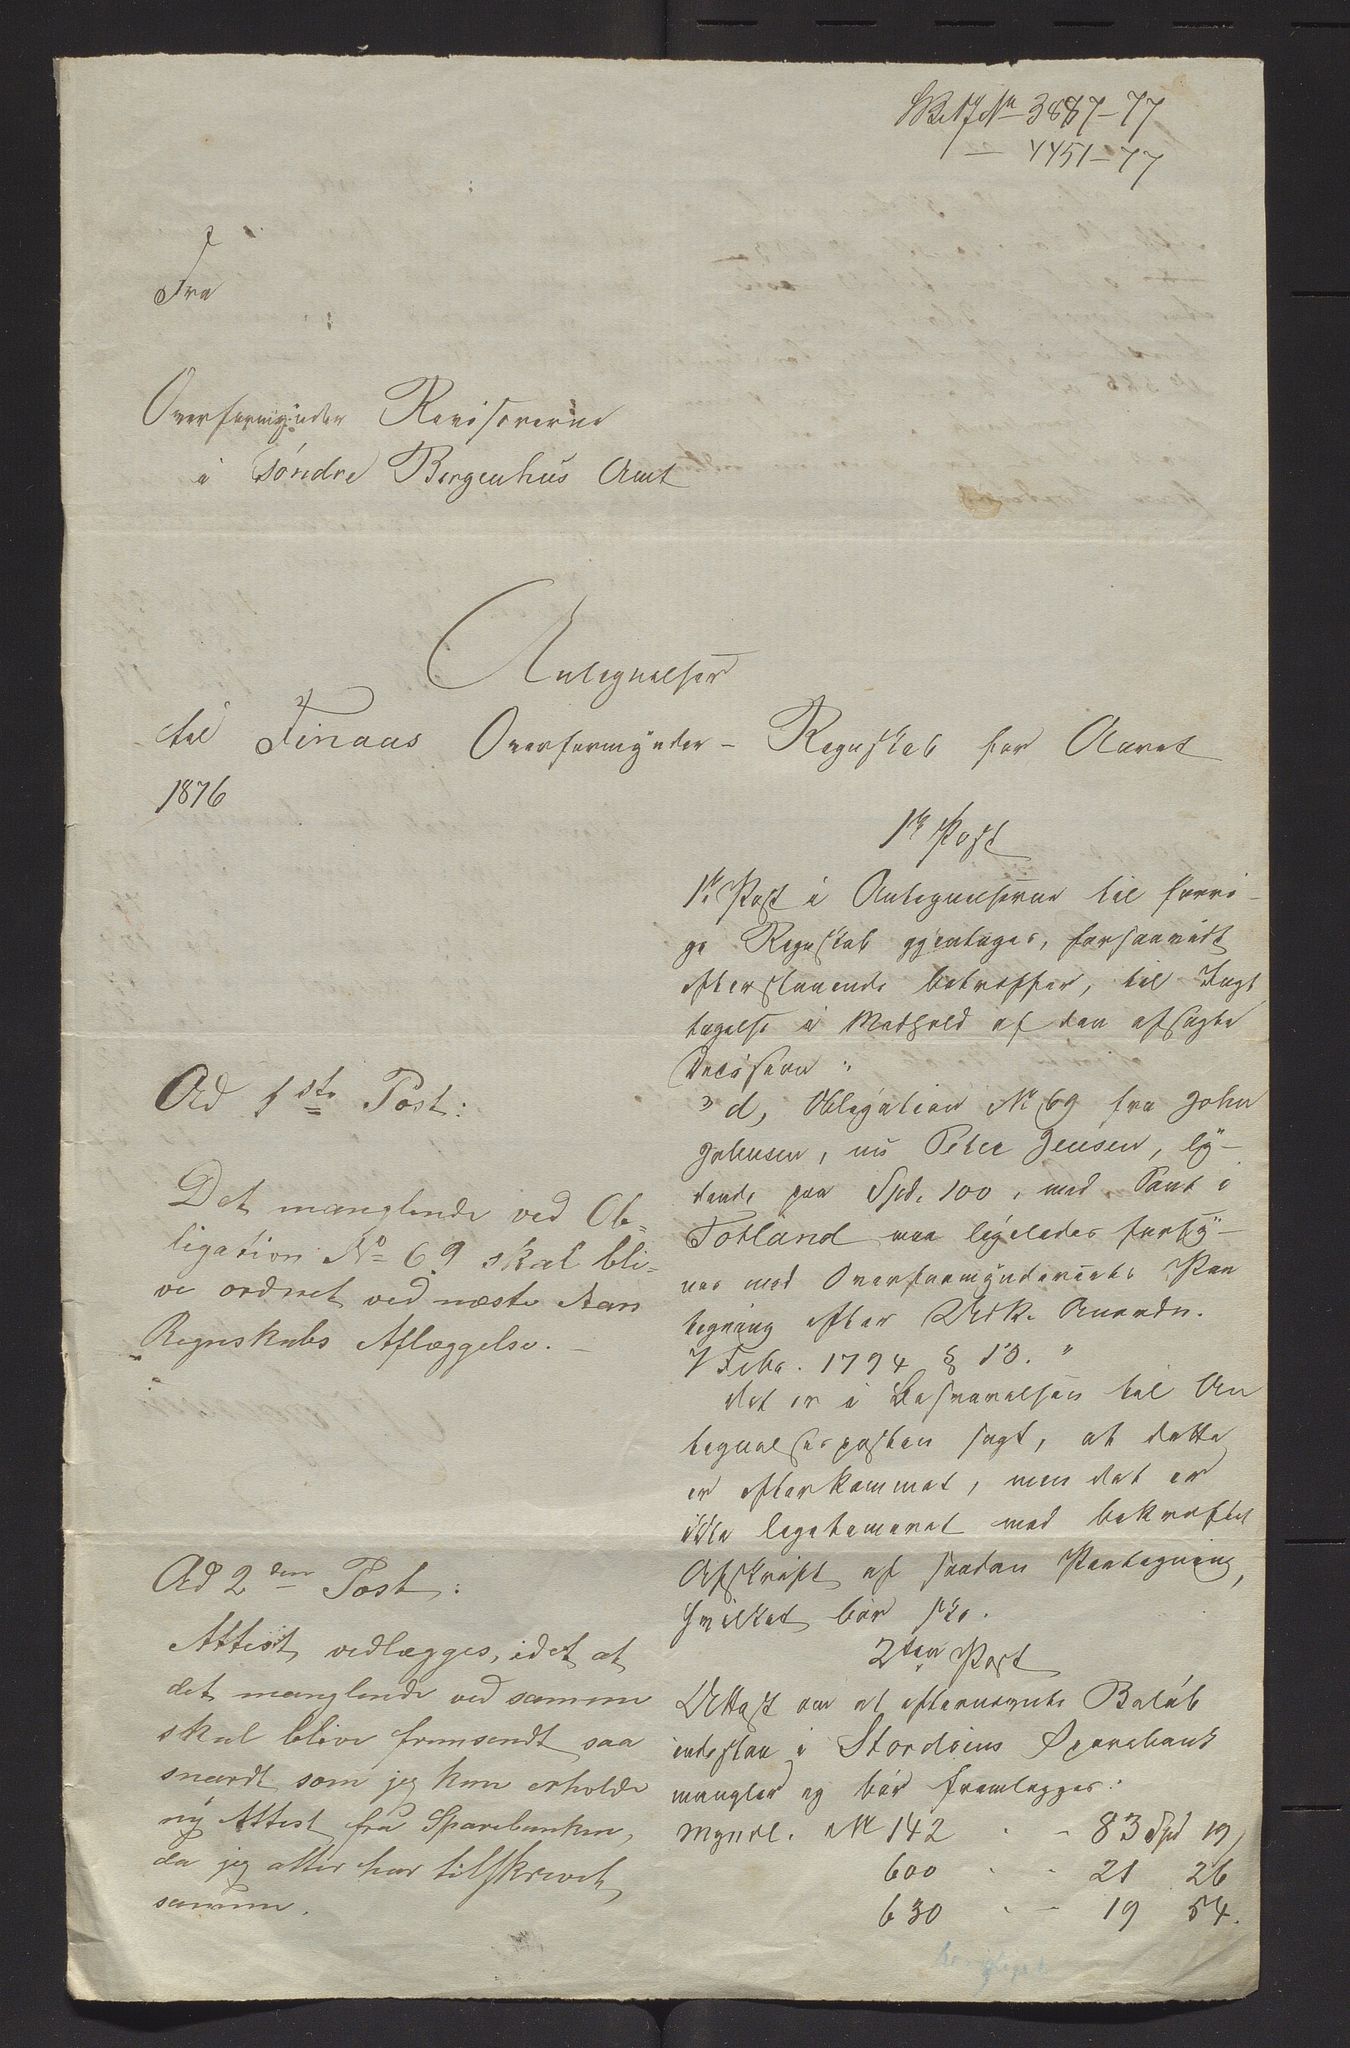 3887-77
— 4451-77
Fra
Overformynder Revisorerne
i Søndre Bergenhus Amt
Antegnelser
til Finaas Overformynder-Regnskab for Aaret
1876
1ste Post
1ste Post i Antegnelserne til forri-
ge Regnskab gjentages, forsaavidt
efterstaaende betræffer, til Iagt
tagelse i Medhold af den afsagte
Decision "
" d, Obligation No 69 fra John
Johnsen, nu Peter Jensen, ly-
dende paa Spd. 100, med Pant i
Totland maa ligeledes forsy-
nes med Overformynderiets Paa
tegning efter Anordn.
7 Febr. 1794 § 13. "
Det er i Besvarelsen til An
tegnelsesposten sagt, at dette
er efterkommet, men det er
ikke legitimeret med bekræftet
Afskrift af saadan Paategning,
hvilket bør skee.
2den Post
Attest om at efternævnte Beløb
indestaa i Stordøens Sparebank
mangler og bør fremlægges:
Myndl. No 142 - - 83 Spd 19
600 - - 21 26
630 - - 19 54.
Ad 1ste Post:
Det manglende ved Ob-
ligation No 69 skal bli-
ve ordnet ved næste Aars
Regnskabs Aflæggelse. —
Ad 2den Post:
Attest vedlægges, idet at
det manglende ved samme
skal blive fremsendt saa
snardt som jeg kan erholde
ny Attest fra Sparebanken,
da jeg atter har tilskrevet
samme.